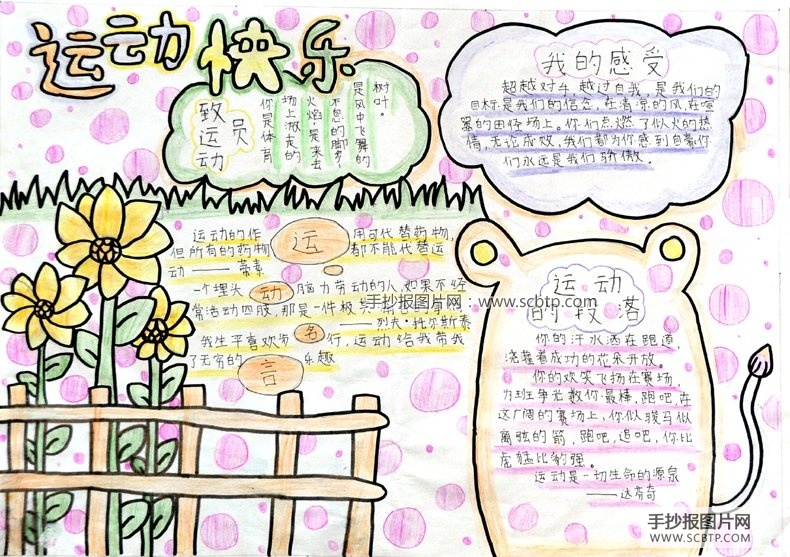 运动快乐
致运动员
你是体育
场上激发的
火焰，是来去
不息的脚步，
是风中飞舞的
树叶。
我的感受
超越对手，越过自我，是我们的
目标是我们的信念，在清凉的风在喧
嚣的田径场上。你们点燃了似火的热
情，无论成败，我们都为你感到自豪你
们永远是我们骄傲。
运动的作用可代替药物，
但所有的药物都不能代替运
动——蒂素
运动名言
一个埋头脑力劳动的人，如果不经
常活动四肢，那是一件极
——列夫·托尔斯泰
我生平喜欢步行，运动给我带我
了无穷的乐趣
手抄报图片网：www.scbtp.com
运动
的段落
你的汗水洒在跑道，
浇灌着成功的花朵开放。
你的欢笑飞扬在赛场，
为班争光数你最棒，跑吧，在
这广阔的赛场上，你似骏马似
离弦的箭，跑吧，追吧，你比
虎猛比豹强。
运动是一切生命的源泉
——达芬奇
手抄报图片网
WWW.SCBTP.COM